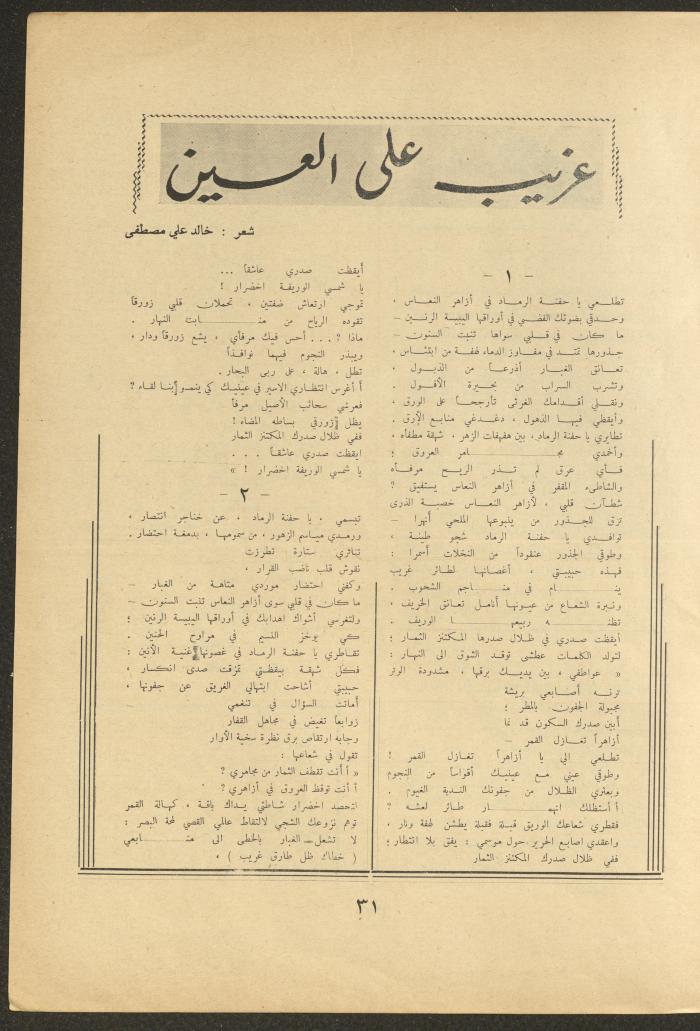 غريب على العين
شعر : خالد علي مصطفى
- ١ -
تطلعي يا حفنة الرماد في أزاهر النعاس ،
وحدقي بضوئك الفضي في أوراقها اليبيسة الرنين –
ما كان في قلبي سواها تنبت السنون –
جذورها تمتد في مفاوز الدماء لهفة من ابتئاس ،
تعانق الغبار أذرعاً من الذبول ،
وتشرب السراب من بحيرة الأفول .
ونقلي أقدامك الغرثى تأرجحاً على الورق ،
وأيقظي فيها الذهول ، دغدغي منابع الأرق .
تطايري يا حفنة الرماد، بين هفهفات الزهر ، شهقة مطفأه ،
وأخمدي مجامر العروق ؛
فأي عرق لم تذر الريح مرفأه
والشاطىء المقفر في أزاهر النعاس يستفيق ؟
شطآن قلبي ، لأزاهر النعاس خصبة الذرى
تزق للجذور من ينبوعها الملحي أنهرا –
توافدي يا حفنة الرماد شجو طينة ،
وطوقي الجذور عنقوداً من النخلات أسمرا :
فهذه حبيبتي ، أغصانها لطائر غريب
ينام في مناجم الشحوب .
ونبرة الشعاع من عيونها أنامل تعانق الخريف ،
تظنه ربيعها الوريف .
أيقظت صدري في ظلال صدرها المكتنز الثمار ؛
لتولد الكلمات عطشى توقد الشوق الى النهار :
« عواطفي ، بين يديك برقها ، مشدودة الوتر
ترنه أصابعي بريشة
مجبولة الجفون بالمطر ؛
أبين صدرك السكون قد نما
أزاهراً تغازل القمر –
تطلعي الي يا أزاهراً تغازل القمر !
وطوقي عيني مع عينيك أقواساً من النجوم
وبعثري الظلال من جفونك الندية الغيوم .
أ أستظلك انهمار طائر لعشه ؟
فقطري شعاعك الوريق قبلة فقبلة يطشن لهفة ونار ،
واعقدي اصابع الحرير حول موسمي : يفق بلا انتظار ؛
ففي ظلال صدرك المكتنز الثمار
أيقظت صدري عاشقاً ...
يا شمسي الوريفة اخضرار !
تموجي ارتعاش ضفتين ، تحملان قلبي زورقاً
تقوده الرياح من منابت النهار .
ماذا ؟ . . . أحس فيك مرفأي ، يشع زورقاً ودار ،
ويبذر النجوم فيهما نوافذاً
تطل ، هالة ، على ربى البحار .
أ أغرس انتظاري الاسير في عينيك كي ينمو لنا لقاء ؟
فعرشي سحائب الأصيل مرفأ
يظل زورقي بساطه المضاء !
ففي ظلال صدرك المكتنز الثمار
ايقظت صدري عاشقاً . . .
يا شمسي الوريفة اخضرار ! »
- ٢ -
تبسمي ، يا حفنة الرماد ، عن خناجر انتصار ،
ورمدي مباسم الزهور ، من سمومها ، بدمغة احتضار .
تناثري ستارة تطرزت
نقوش قلب ناضب القرار ،
وكفني احتضار موردي متاهة من الغبار –
ما كان في قلبي سوى أزاهر النعاس تنبت السنون –
ولتغرسي أشواك اهدابك في أوراقها اليبيسة الرنين ؛
كي يوخز النسيم في مراوح الحنين .
تقاطري يا حفنة الرماد في غصونها أغنية الأنين :
فكل شهقة بيقظتي تمزقت صدى انكسار ،
حبيبتي أشاحت ابتهالي الغريق عن جفونها ،
أماتت السؤال في تنغمي
زوابعاً تغيض في مجاهل القفار
وجابه ارتقاص برق نظرة سخية الأوار
تقول في شعاعها :
« أ أنت تقطف الثمار من مجامري ؟
أ أنت توقظ العروق في أزاهري ؟
اتحصد اخضرار شاطئي يداك باقة ، كهالة القمر
توهم نزوعك الشجي لالتقاط عالمي القصي لمحة البصر :
لا تشعل الغبار بالخطى الى منابعي
( خطاك ظل طارق غريب ) ،
٣١